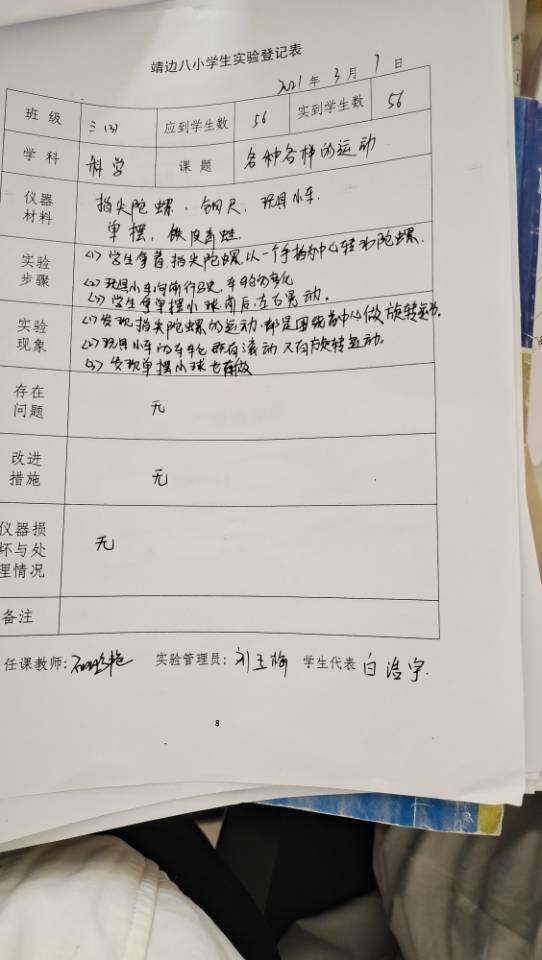 靖边八小学生实验登记表
2021 年 3 月 7 日
班 级 三(3) 应到学生数 56 实到学生数 56
学 科 科学 课 题 各种各样的运动
仪器
材料
指尖陀螺、钢尺、玩具小车、
单摆、橡皮
实验
步骤
(1) 学生拿着指尖陀螺,以一个手指为中心转动陀螺.
(2) 玩具小车向前行驶,车轮的变化
(3) 学生拿单摆小球前后左右晃动.
实验
现象
(1) 发现指尖陀螺的运动,都是围绕着中心做旋转运动.
(2) 玩具小车的车轮既有滚动又有旋转运动.
(3) 发现单摆小球也在做
存在
问题
无
改进
措施
无
仪器损
坏与处
理情况
无
备注
任课教师: 实验管理员: 刘玉梅 学生代表 白浩宇.
8